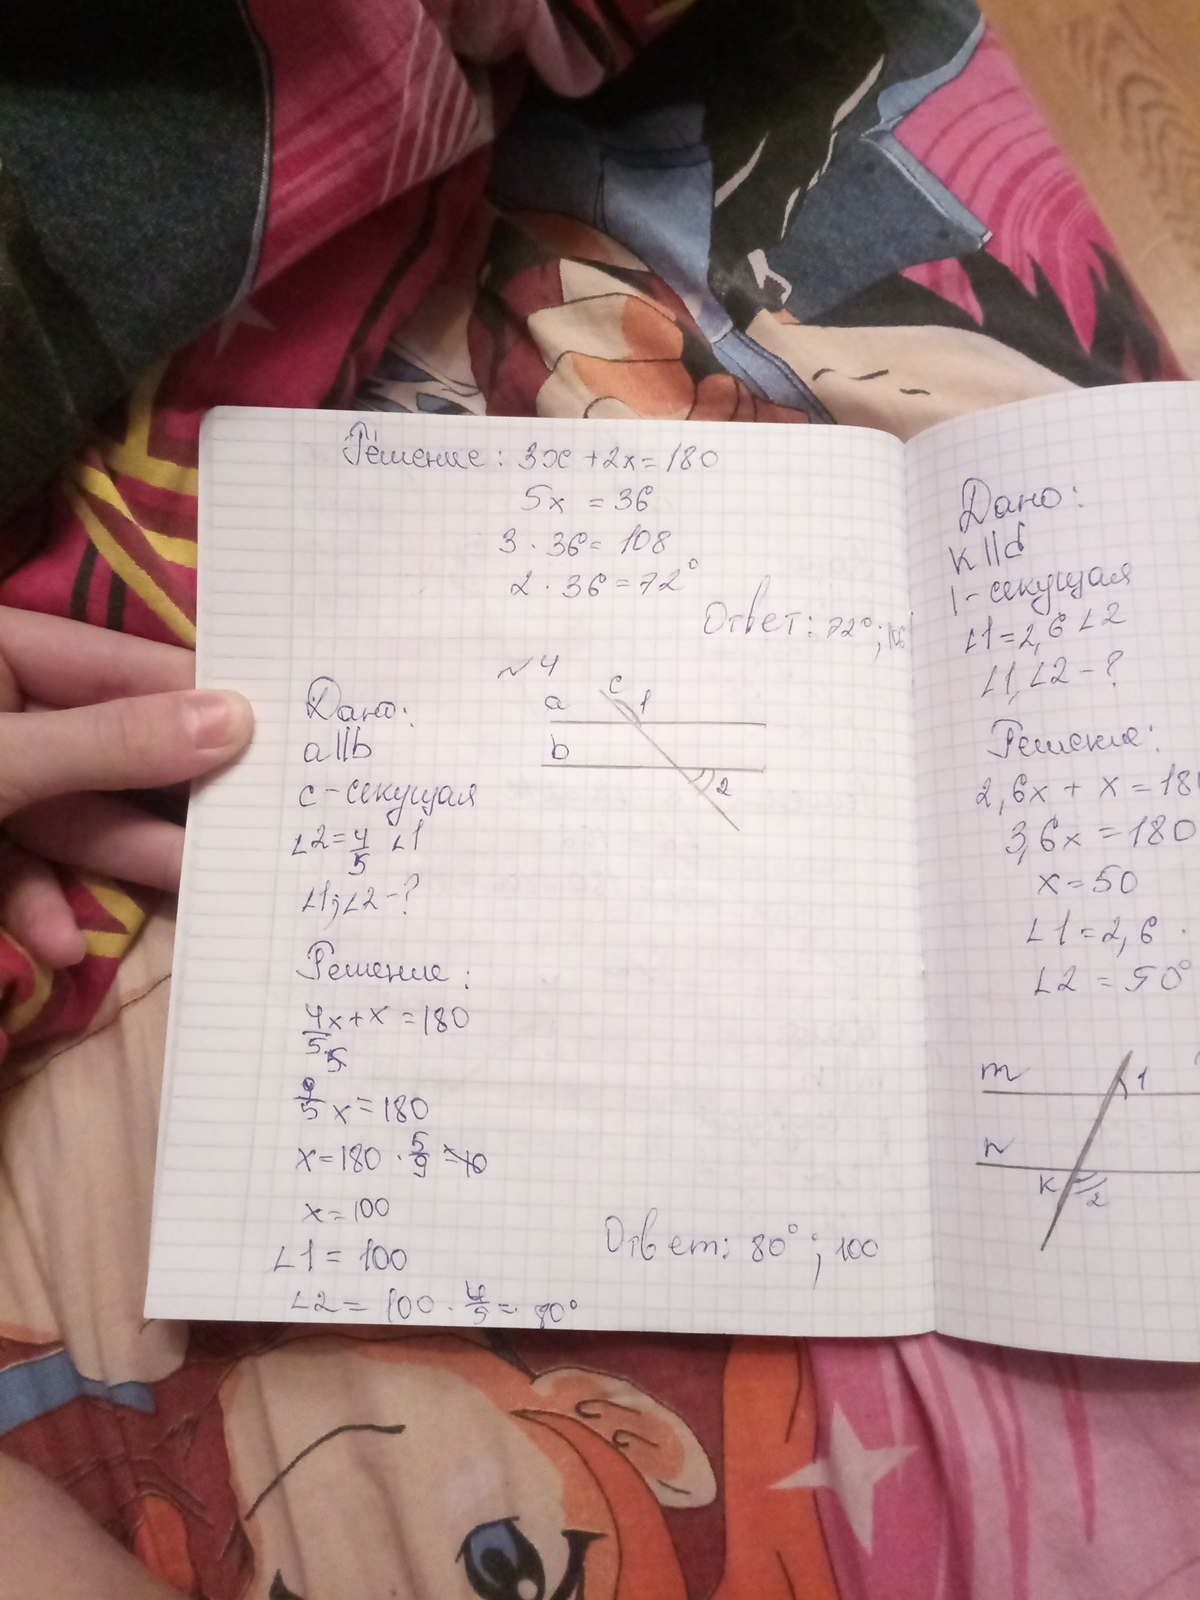 Решение: 3x + 2x = 180
5x = 36
3 · 36 = 108
2 · 36 = 72°
Ответ: 72°; 108
№4
Дано:
a||b
c - секущая
∠2 = 4/5 ∠1
∠1; ∠2 - ?
a
b
c
1
2
Решение:
4/5x + x = 180
5
9/5 x = 180
x = 180 · 5/9
x = 100
∠1 = 100
∠2 = 100 · 4/5 = 80°
Ответ: 80°; 100
Дано:
K||d
1 - секущая
∠1 = 2,6 ∠2
∠1, ∠2 - ?
Решение:
2,6x + x = 180
3,6x = 180
x = 50
∠1 = 2,6 ·
∠2 = 50°
m
1
n
K
2